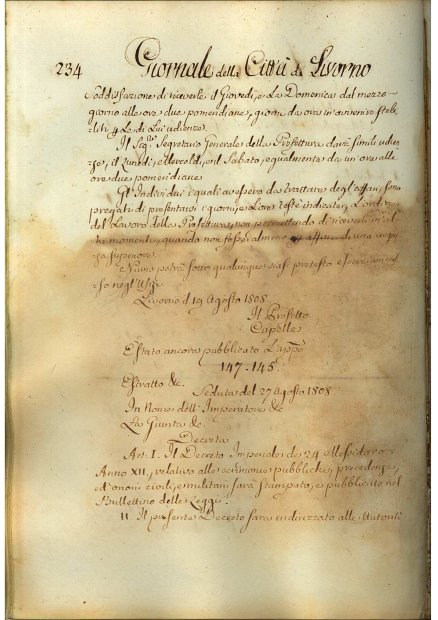 234 Giornale della Città di Livorno
soddisfazione di riceverle il Giovedì, e La Domenica dal mezzo-
giorno alle ore due pomeridiane, giorni da ora in avvenire stabi-
liti per Le di Lui udienze.
Il Sig. Segretario Generale della Prefettura darà simili udien-
ze, il Lunedì, e il Sabato, egualmente da un'ora alle
ore due pomeridiane
Gl'Individui i quali avessero da trattare degl'affari, sono
pregati di presentarsi i giorni, e L'ora testè indicati, L'ordine
del Lavoro della Prefettura, non permettendo di riceverli in al-
tri momenti, quando non fosse almeno di una
superiore.
Niuno potrà sotto qualunque siasi pretesto essere ammes-
so negl'Uffizj
Livorno il 19 Agosto 1808
Il Prefetto
Capelle
È stato ancora pubblicato L'appso
147-145
Estratto &c.
Seduta del 27 Agosto 1808
In Nome dell'Imperatore &c
La Giunta &c
Decreta
Art. I. Il Decreto Imperiale de 24 Messidoro
Anno XII, relativo alle cerimonie pubbliche, precedenze,
ed onori civili, e militari sarà stampato, e pubblicato nel
Bullettino delle Leggi.
II Il presente Decreto sarà indirizzato alle Autorità